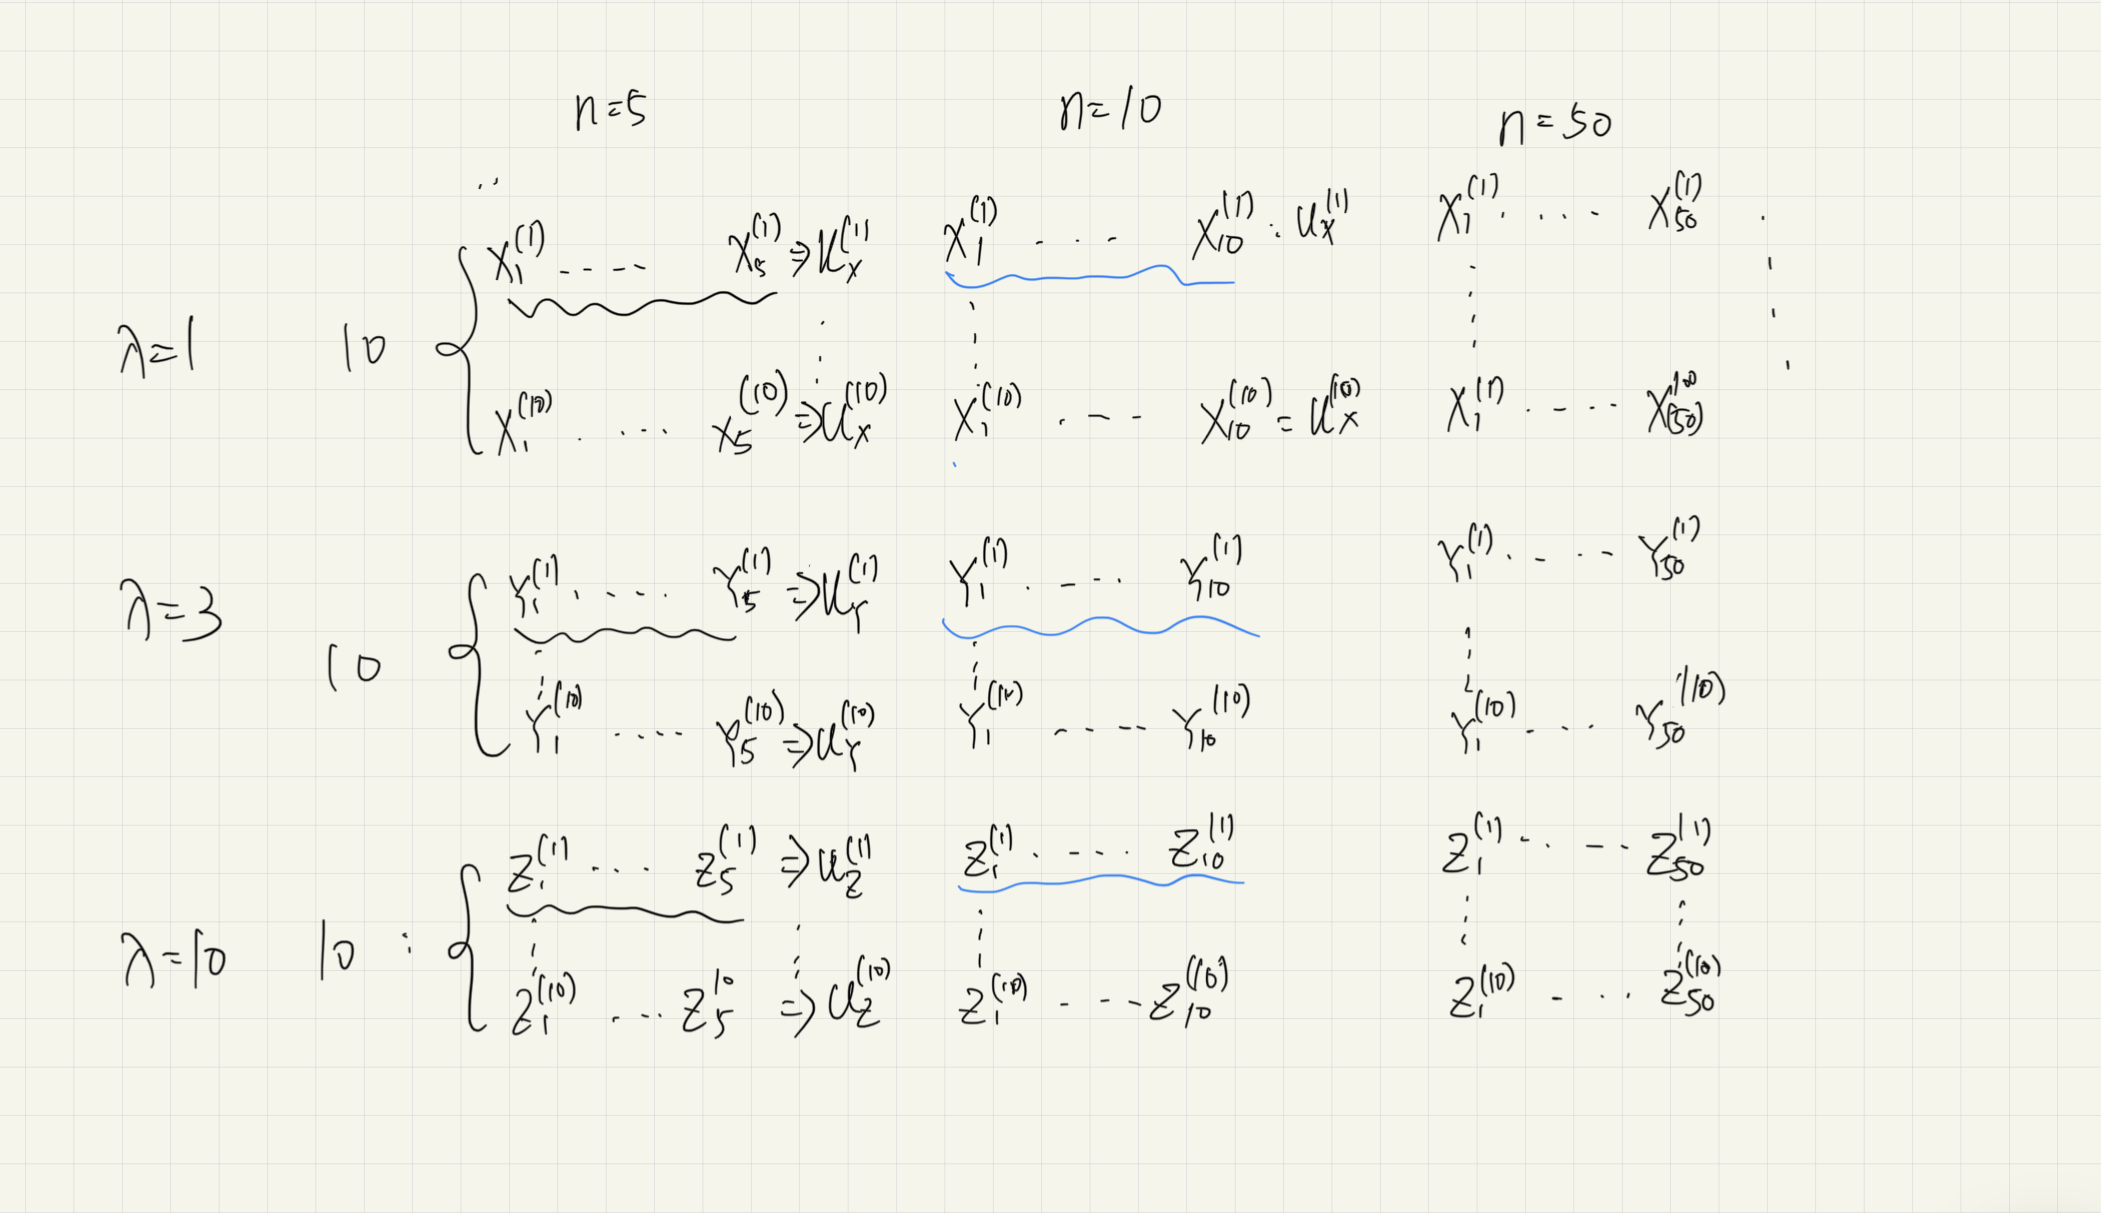 n=5 n=10 n=50
X₁⁽¹⁾ .... X₅⁽¹⁾ ⇒ U_X⁽¹⁾ X₁⁽¹⁾ ... X₁₀⁽¹⁾ : U_X⁽¹⁾ X₁⁽¹⁾ .... X₅₀⁽¹⁾
λ=1 10 {
X₁⁽¹⁰⁾ .... X₅⁽¹⁰⁾ ⇒ U_X⁽¹⁰⁾ X₁⁽¹⁰⁾ .--- X₁₀⁽¹⁰⁾ = U_X⁽¹⁰⁾ X₁⁽¹⁾ .... X₍₅₀₎¹⁰
Y₁⁽¹⁾ .... Y₅⁽¹⁾ ⇒ U_Y⁽¹⁾ Y₁⁽¹⁾ .... Y₁₀⁽¹⁾ Y₁⁽¹⁾ .... Y₅₀⁽¹⁾
λ=3 10 {
Y₁⁽¹⁰⁾ .... Y₅⁽¹⁰⁾ ⇒ U_Y⁽¹⁰⁾ Y₁⁽¹⁰⁾ .... Y₁₀⁽¹⁰⁾ Y₁⁽¹⁰⁾ ... Y₅₀⁽¹⁰⁾
Z₁⁽¹⁾ ... Z₅⁽¹⁾ ⇒ U_Z⁽¹⁾ Z₁⁽¹⁾ .... Z₁₀⁽¹⁾ Z₁⁽¹⁾ .... Z₅₀⁽¹⁾
λ=10 10 : {
Z₁⁽¹⁰⁾ .... Z₅¹⁰ ⇒ U_Z⁽¹⁰⁾ Z₁⁽¹⁰⁾ .... Z₁₀⁽¹⁰⁾ Z₁⁽¹⁰⁾ ... Z₅₀⁽¹⁰⁾